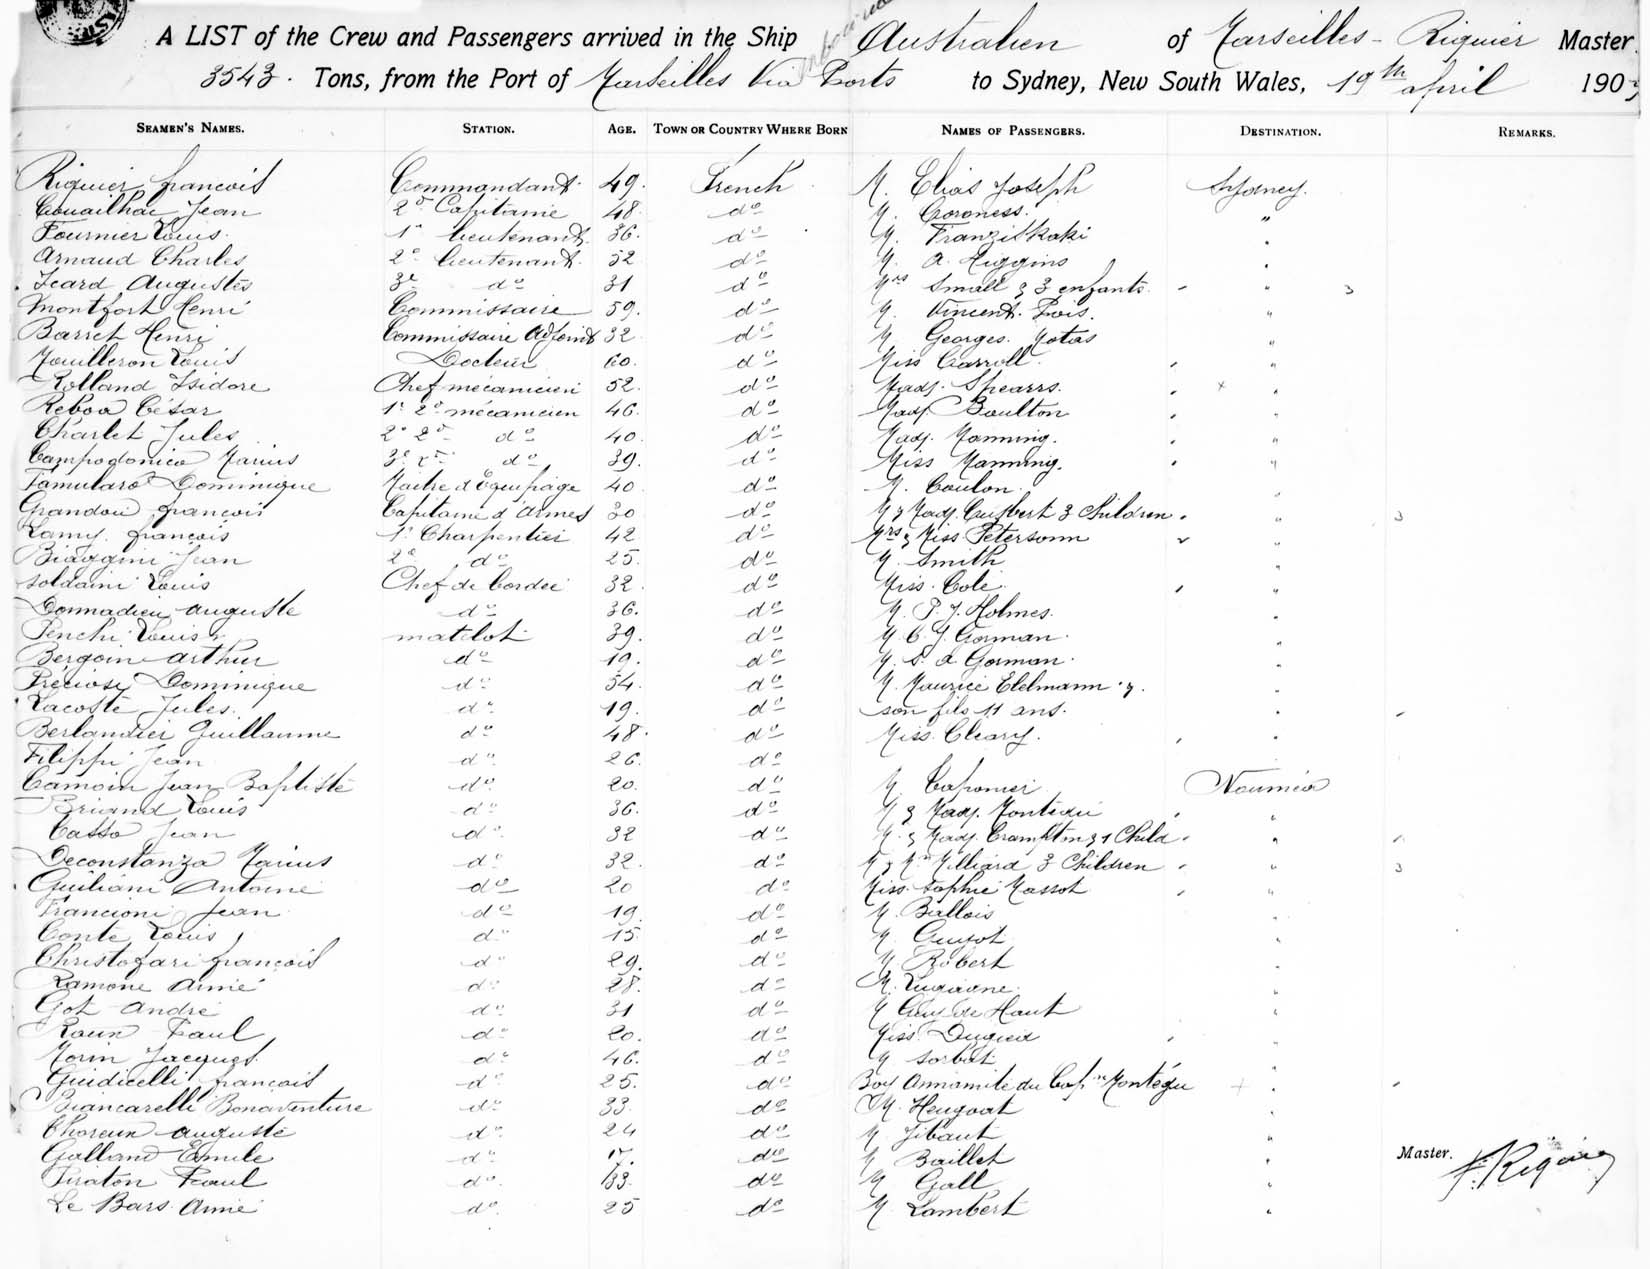 A LIST of the Crew and Passengers arrived in the Ship Australien of Marseilles - Riquier Master
3543. Tons, from the Port of Marseilles Via Ports to Sydney, New South Wales, 19th april 1903
SEAMEN'S NAMES. STATION. AGE. TOWN OR COUNTRY WHERE BORN NAMES OF PASSENGERS. DESTINATION. REMARKS.
Riquier françois Commandant. 49. French M. Elias Joseph Sydney.
Couailhac Jean 2d Capitaine 48. do M. Coroness. "
Fournier Louis. 1r lieutenant. 36. do M. Franzitkaki "
Arnaud Charles 2e lieutenant. 52 do M. A. Higgins "
Icard Augustes 3e do 31 do Mrs Small & 3 enfants. " 3
Montfort Henri Commissaire 59. do M. Vincent. Pois. "
Barret Henri Commissaire Adjoint 32 do M Georges. Yotas "
Mouilleron Louis Docteur 60. do Miss Carroll. "
Rolland Isidore Chef mécanicien 52. do Mad. Spearrs. "
Reboa César 1r 2e mécanicien 46. do Mad. Boulton "
Charlet Jules 2e 2e do 40. do Mad. Manning. "
Campodonico Marius 3e do 39. do Miss Manning. "
Famularo Dominique Maitre d'Equipage 40. do M. Coulon. "
Grandou françois Capitaine d'Armes 30 do M & Mad. Cuthbert 3 Children. " 3
Lamy. françois 1r Charpentier 42 do Mrs & Miss Petersonn "
Biaggini Jean 2e do 25. do M. Smith "
Soldaini Louis Chef de Bordée 32. do Miss. Cole. "
Donnadieu auguste do 36. do M. P. J. Holmes. "
Penchi Louis matelot 39. do M. C. J. Gorman. "
Bergoin arthur do 19. do M. S. a Gorman. "
Préciosi Dominique do 54. do M. Maurice Edelmann & "
Lacoste Jules. do 19. do son fils 11 ans. "
Berlandier Guillaume do 48. do Miss. Cleary. "
Filippi Jean do 26. do
Camoin Jean Baptiste do 20. do M. Caponier Nouméa
Briand Louis do 36. do M & Mad. Montégu "
Casso Jean do 32 do M. & Mad. Crampton & 1 Child "
Deconstanza Marius do 32. do M & Me Milliard 3 Children " 3
Guiliani Antoine do 20 do Miss. Sophie Massot "
Francioni Jean do 19. do M. Ballois "
Conte Louis do 15. do M. Guyot "
Christofari françois do 29. do M. Robert "
Ramone Aimé do 28. do M. "
Got André do 31 do M Guy de Haut "
Roux Paul do 20. do Miss. "
Morin Jacques do 46. do M Sorbat "
Guidicelli françois do 25. do Boy Annamite du Capne Montégu "
Biancarelli Bonaventure do 33. do M. Heugoat "
auguste do 24 do M. Jibaut "
Galland Emile do 17. do M Baillet " Master. F. Riquier
Piraton Paul do 33. do M Gall "
Le Bars. Aimé do 25 do M Lambert "